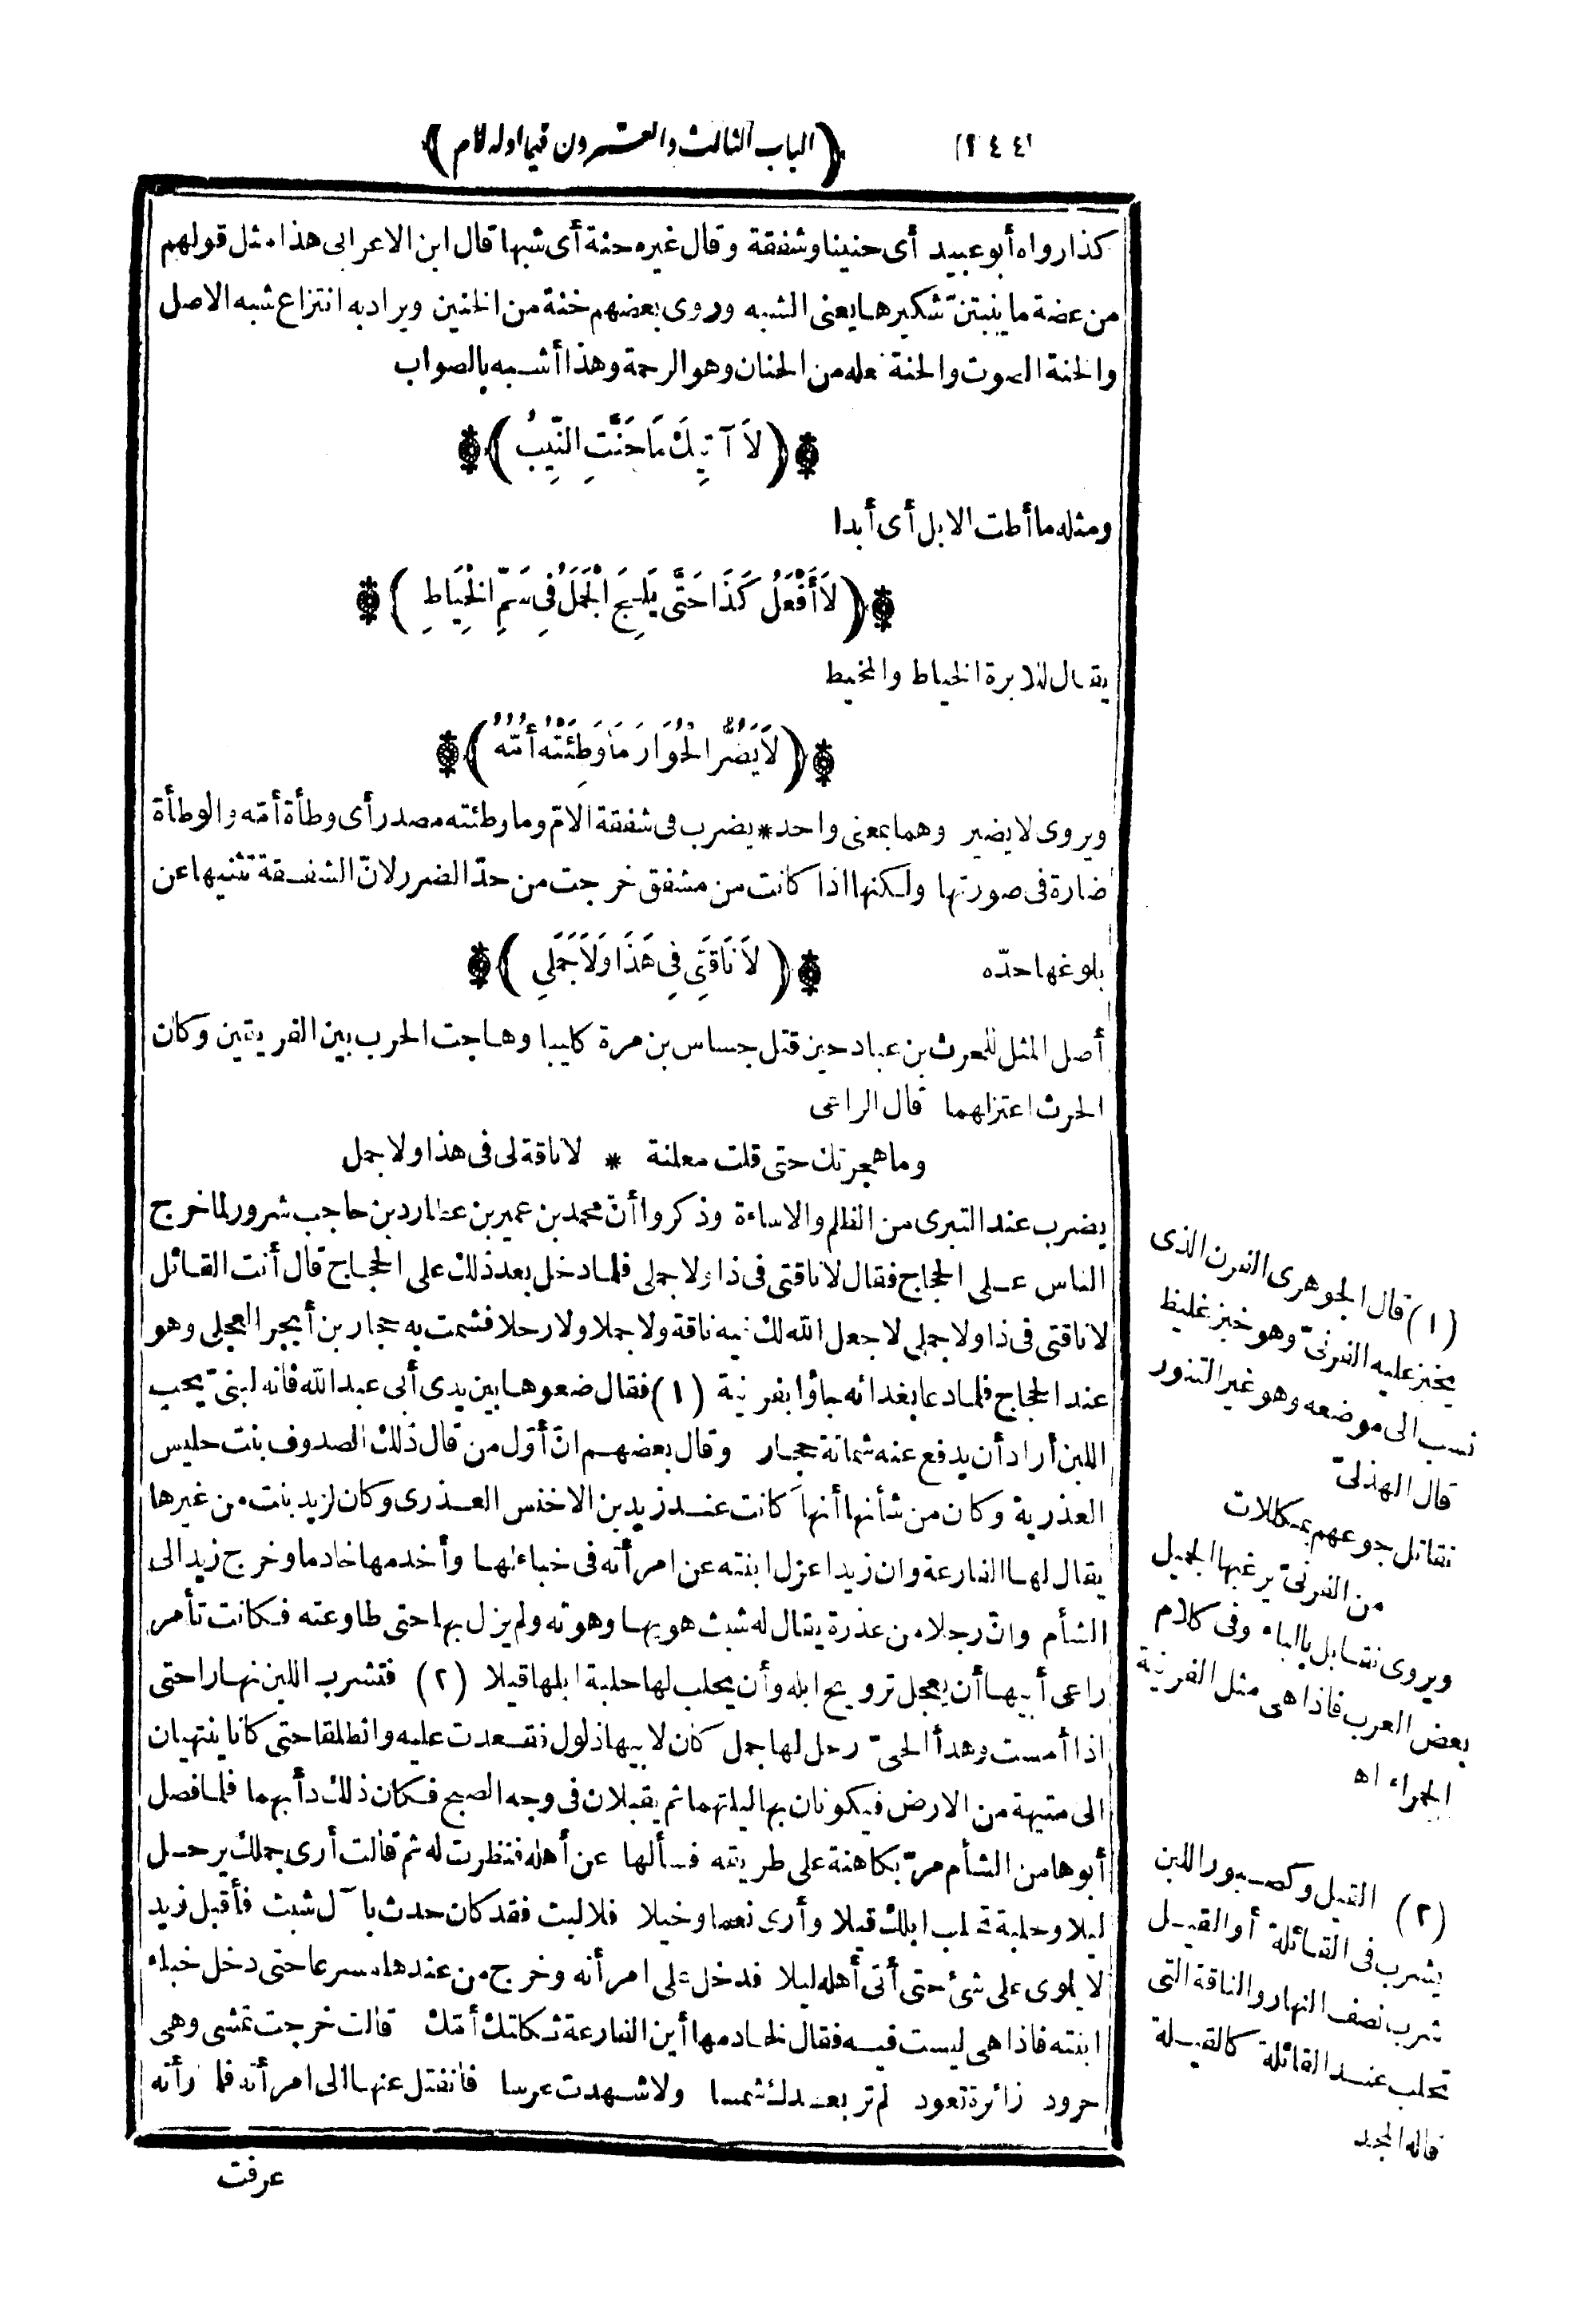 (٢٤٤)
﴿الباب الثالث والعشرون فيما اوله لام﴾
كذا رواه أبو عبيد أى حنينا وشفقة وقال غيره حنة أى شبها قال ابن الاعرابى هذا مثل قولهم
من عضة ما ينبتنّ شكيرها يعنى الشبه وروى بعضهم خنة من الخنين ويراد به انتزاع شبه الاصل
والخنة الصوت والحنة فعله من الحنان وهو الرحمة وهذا أشبه بالصواب
﴿لَا آتِيكَ مَا حَنَّتِ النِّيبُ﴾
ومثله ما أطت الابل أى أبدا
﴿لَا أَفْعَلُ كَذَا حَتَّى يَلِجَ الْجَمَلُ فِى سَمِّ الْخِيَاطِ﴾
يقال للابرة الخياط والمخيط
﴿لَا يَضُرُّ الْحُوَارَ مَا وَطِئَتْهُ أُمُّهُ﴾
ويروى لا يضير وهما بمعنى واحد * يضرب فى شفقة الامّ وما وطئته مصدر أى وطأة أمّه والوطأة
ضارة فى صورتها ولكنها اذا كانت من مشفق خرجت من حدّ الضرر لانّ الشفقة تثنيها عن
بلوغها حدّه
﴿لَا نَاقَتِى فِى هَذَا وَلَا جَمَلِى﴾
أصل المثل للحرث بن عباد حين قتل جساس بن مرة كليبا وهاجت الحرب بين الفريقين وكان
الحرث اعتزلهما قال الراعى
وما هجرتك حتى قلت معلنة * لا ناقة لى فى هذا ولا جمل
يضرب عند التبرى من الظلم والاساءة وذكروا أنّ محمد بن عمير بن عطارد بن حاجب شرور لما خرج
الناس على الحجاج فقال لا ناقتى فى ذا ولا جملى فلما دخل بعد ذلك على الحجاج قال أنت القائل
لا ناقتى فى ذا ولا جملى لا جعل الله لك فيه ناقة ولا جملا ولا رحلا فشمت به حجار بن أبجر العجلى وهو
عند الحجاج فلما دعا بغدائه جاؤا بفرنية (١) فقال ضعوها بين يدى أبى عبد الله فانه لبنىّ يحب
اللبن أراد أن يدفع عنه شماتة حجار وقال بعضهم انّ أوّل من قال ذلك الصدوف بنت حليس
العذرية وكان من شأنها أنها كانت عند زيد بن الاخنس العذرى وكان لزيد بنت من غيرها
يقال لها الفارعة وان زيدا عزل ابنته عن امرأته فى خباء لها وأخدمها خادما وخرج زيد الى
الشأم وانّ رجلا من عذرة يقال له شبث هويها وهوته ولم يزل بها حتى طاوعته فكانت تأمر
راعى أبيها أن يعجل ترويح ابله وأن يحلب لها حلبة ابلها قيلا (٢) فتشرب اللبن نهارا حتى
اذا أمست وهدأ الحىّ رحل لها جمل كان لابيها ذلول فقعدت عليه وانطلقا حتى كانا ينتهيان
الى متيهة من الارض فيكونان بها ليلتهما ثم يقبلان فى وجه الصبح فكان ذلك دأبهما فلما فصل
أبوها من الشأم مرّ بكاهنة على طريقه فسألها عن أهله فنظرت له ثم قالت أرى جملك يرحل
ليلا وحلبة تحلب ابلك قيلا وأرى نعما وخيلا فلا لبث فقد كان حدث بآل شبث فأقبل زيد
لا يلوى على شئ حتى أتى أهله ليلا فدخل على امرأته وخرج من عندها مسرعا حتى دخل خباء
ابنته فاذا هى ليست فيه فقال لخادمها أين الفارعة ثكلتك أمّك قالت خرجت تمشى وهى
حرود زائرة تعود لم تر بعدك شمسا ولا شهدت عرسا فانفتل عنها الى امرأته فلما رأته
عرفت
(١) قال الجوهرى الفرن الذى
يخبز عليه الفرنىّ وهو خبز غليظ
نسب الى موضعه وهو غير التنور
قال الهذلىّ
نقاتل جوعهم بمكللات
من الفرنىّ يرعبها الجميل
ويروى نقابل بالباء وفى كلام
بعض العرب فاذا هى مثل الفرنية
الحمراء اه
(٢) القيل وكصبور اللبن
يشرب فى القائلة أو القيل
شرب نصف النهار والناقة التى
تحلب عند القائلة كالقيلة
قاله المجد